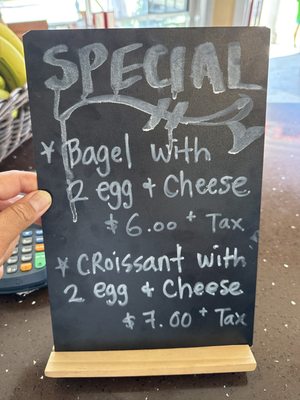 SPECIAL
* Bagel with
2 egg + Cheese
$6.00 + Tax
* CRoissant with
2 egg + Cheese
$7.00 + Tax